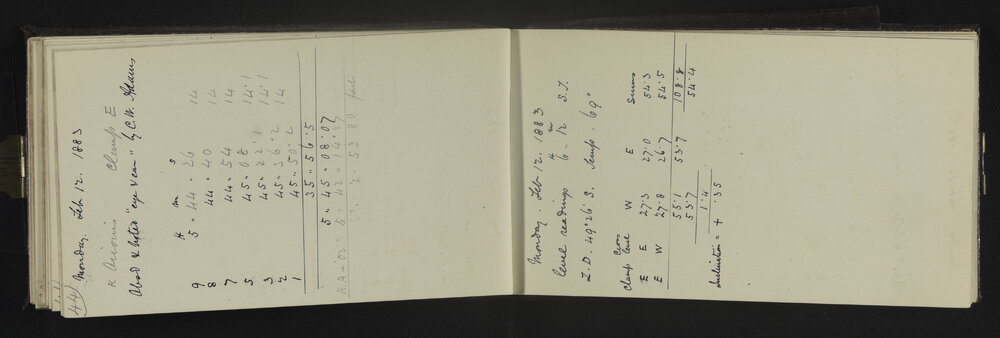 44
Monday. Feb 12. 1883
K Orionis Clamp E
Obsd & noted "eye & ear" by C.W. Adams
H m s
9 5 . 44 . 26 14
8 44 . 40 14
7 44 . 54 14
5 45 . 08 . 14 . 1
3 45 . 22 . 1 14 . 1
2 45 . 36 . 2 14
1 45 . 50 . 2
35 . 56 . 5
5 . 45 . 08 . 07
2 . 53.80
Monday. Feb 12. 1883
level readings H 6 . m 12 S.T.
Z.D. 49° 26' S. Temp. 69°
Clamp Cross level W E Sums
E E 27.3 27.0 54.3
E W 27.8 26.7 54.5
55.1 53.7 108.8
53.7 54.4
1.4
Inclination = + .35